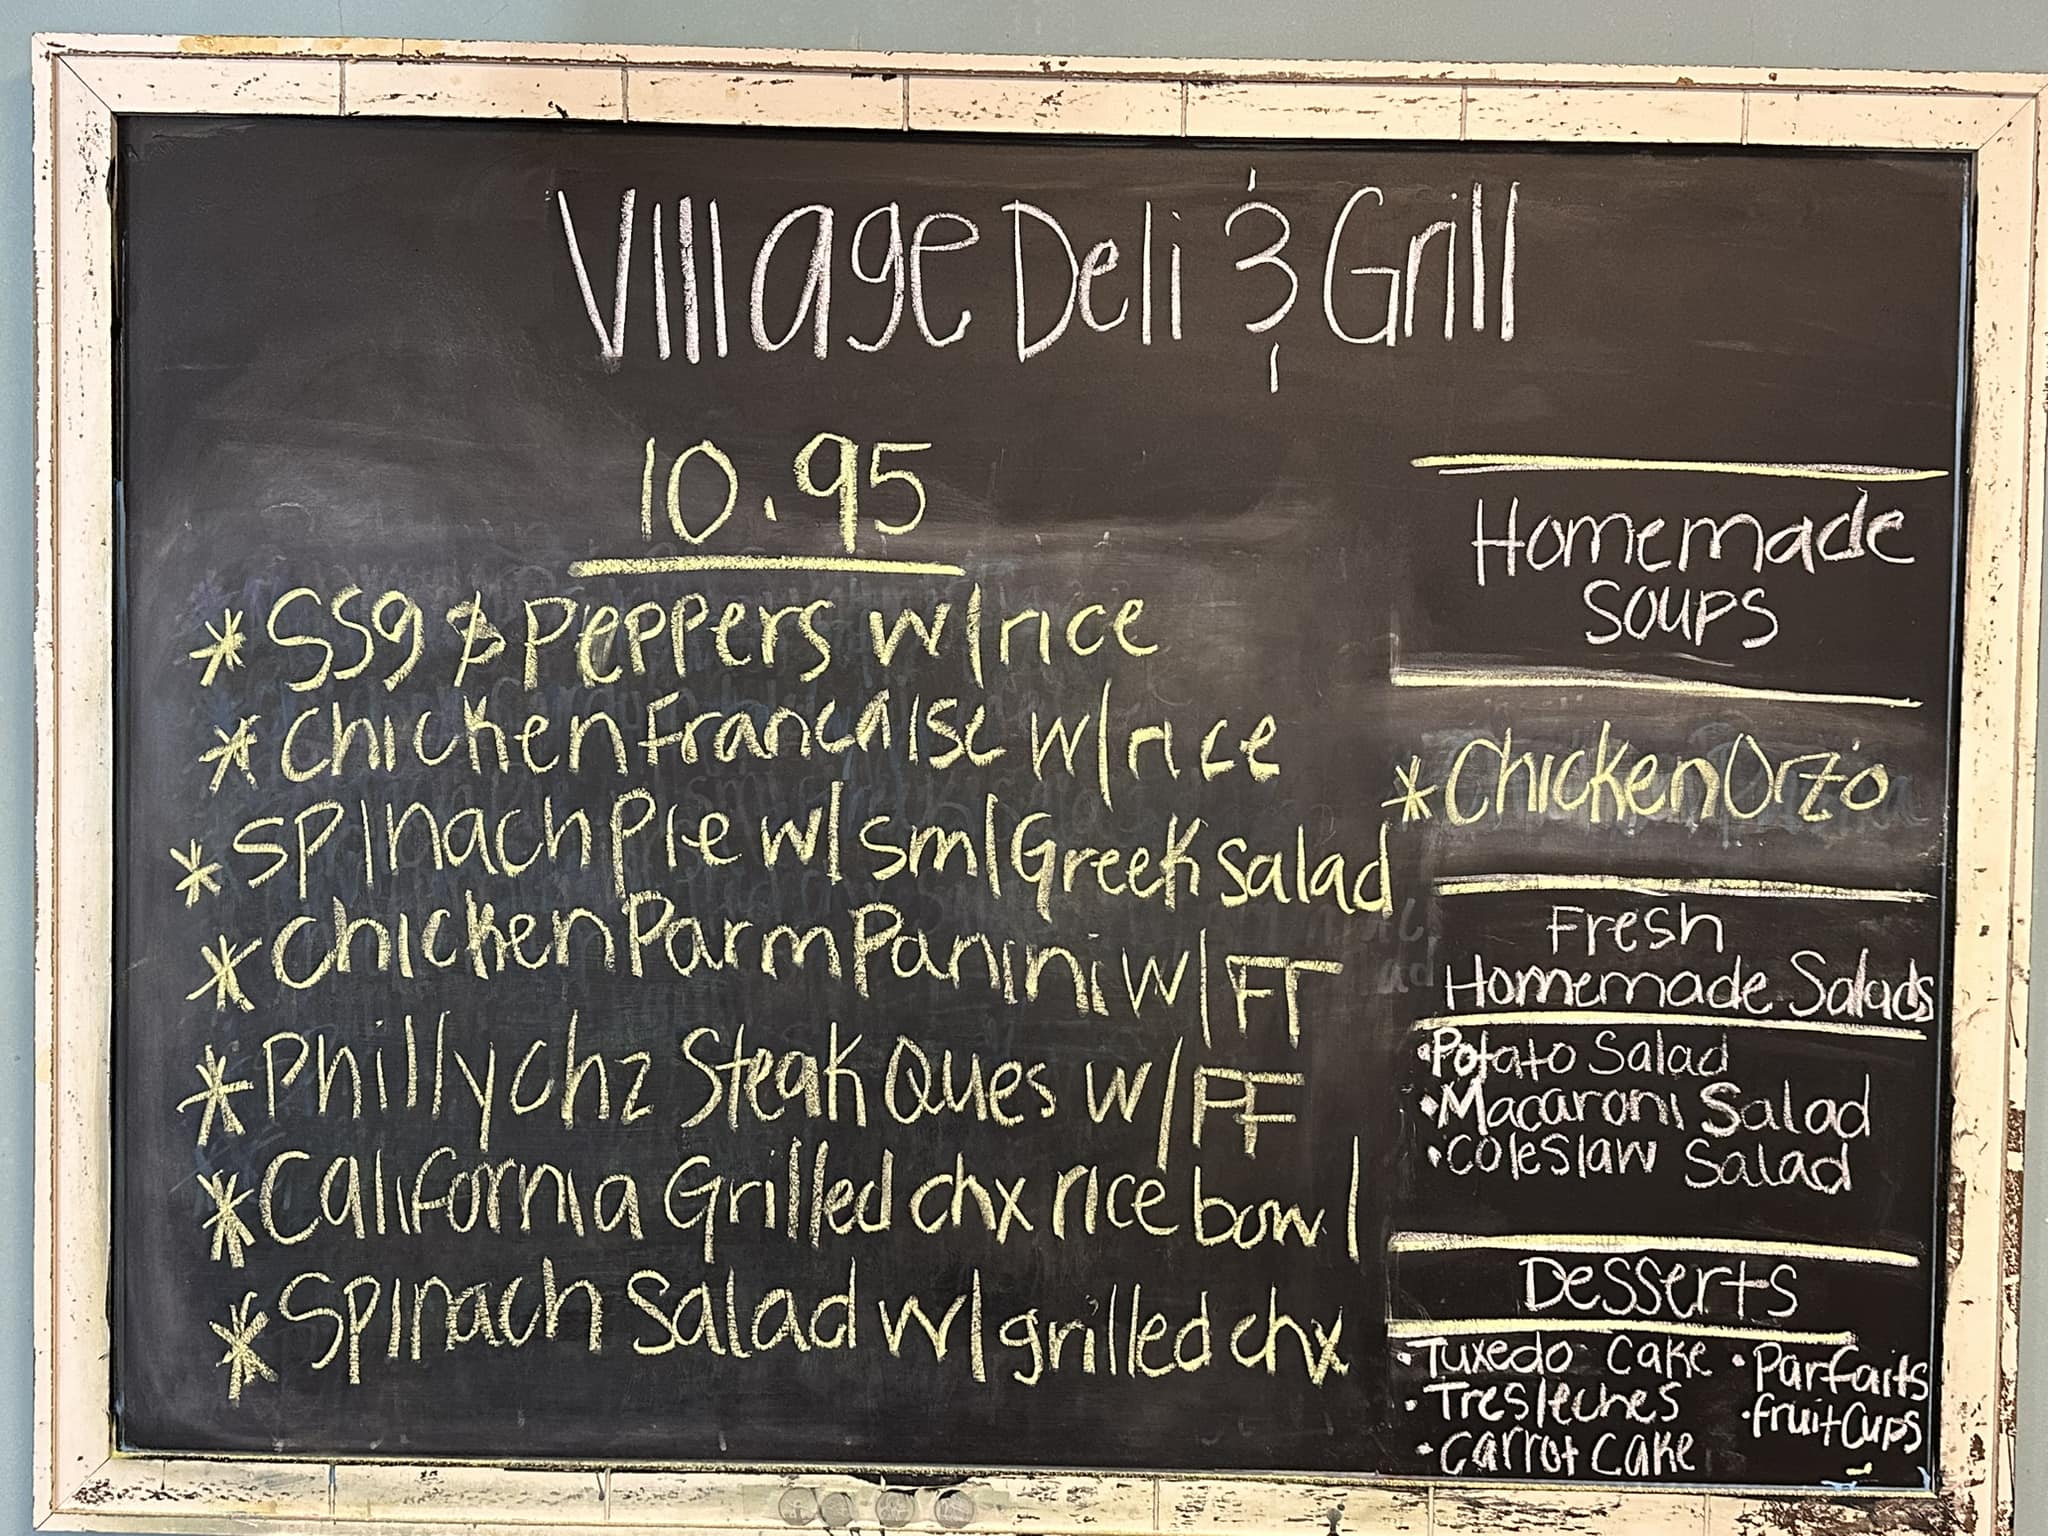 Village Deli & Grill
10.95
* SSg & Peppers w/rice
* Chicken Francaise w/rice
* Spinach Pie w/ sml Greek Salad
* Chicken Parm Panini w/FF
* Philly Chz Steak Ques w/FF
* California Grilled chx rice bowl
* Spinach Salad w/grilled chx
Homemade
Soups
* Chicken Orzo
Fresh
Homemade Salads
• Potato Salad
• Macaroni Salad
• Coleslaw Salad
Desserts
• Tuxedo Cake
• Tresleches
• Carrot Cake
• Parfaits
• Fruit Cups